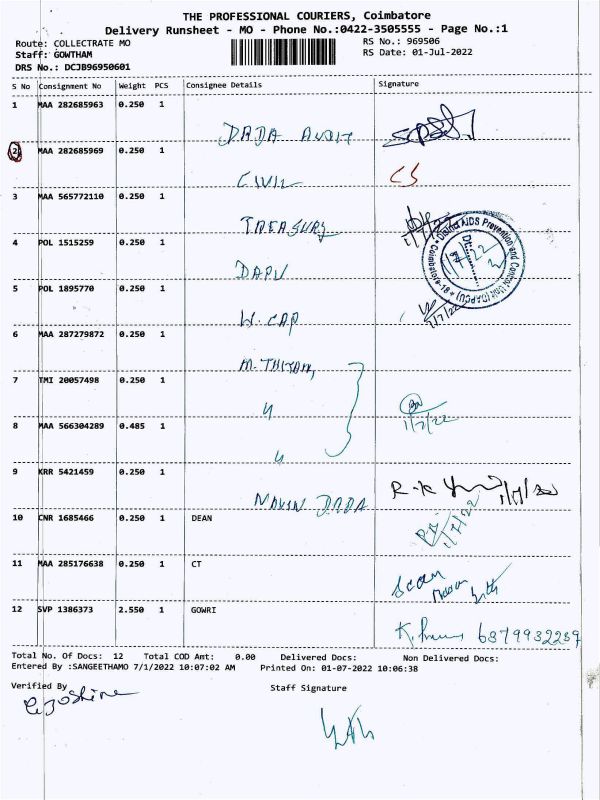 THE PROFESSIONAL COURIERS, Coimbatore
Delivery Runsheet - MO - Phone No.:0422-3505555 - Page No.:1
Route: COLLECTRATE MO RS No.: 969506
Staff: GOWTHAM RS Date: 01-Jul-2022
DRS No.: DCJB96950601
S No Consignment No Weight PCS Consignee Details Signature
1 MAA 282685963 0.250 1
DADA AUDIT
2 MAA 282685969 0.250 1
CIVIL CS
3 MAA 565772110 0.250 1
TREASURY 1/7/22
4 POL 1515259 0.250 1
DAPU
District AIDS Prevention and Control Unit (DAPCU) Coimbatore-18
5 POL 1895770 0.250 1
W. CAP 1/7/22
6 MAA 287279872 0.250 1
7 TMI 20057498 0.250 1
8 MAA 566304289 0.485 1
1/7/22
9 KRR 5421459 0.250 1
NAVIN DADA
10 CNR 1685466 0.250 1 DEAN 1/7/22
11 MAA 285176638 0.250 1 CT
12 SVP 1386373 2.550 1 GOWRI
6379932259
Total No. Of Docs: 12 Total COD Amt: 0.00 Delivered Docs: Non Delivered Docs:
Entered By :SANGEETHAMO 7/1/2022 10:07:02 AM Printed On: 01-07-2022 10:06:38
Verified By Staff Signature